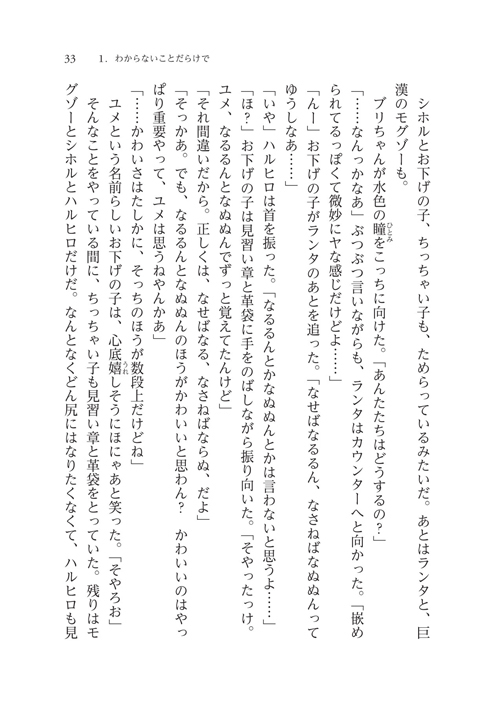 33　1．わからないことだらけで
　シホルとお下げの子、ちっちゃい子も、ためらっているみたいだ。あとはランタと、巨
漢のモグゾーも。
　ブリちゃんが水色の瞳ひとみをこっちに向けた。「あんたたちはどうするの？」
「……なんっかなあ」ぶつぶつ言いながらも、ランタはカウンターへと向かった。「嵌め
られてるっぽくて微妙にヤな感じだけどよ……」
「んー」お下げの子がランタのあとを追った。「なせばなるるん、なさねばなぬぬんって
ゆうしなあ……」
「いや」ハルヒロは首を振った。「なるるんとかなぬぬんとかは言わないと思うよ……」
「ほ？」お下げの子は見習い章と革袋に手をのばしながら振り向いた。「そやったっけ。
ユメ、なるるんとなぬぬんでずっと覚えてたんけど」
「それ間違いだから。正しくは、なせばなる、なさねばならぬ、だよ」
「そっかあ。でも、なるるんとなぬぬんのほうがかわいいと思わん？　かわいいのはやっ
ぱり重要やって、ユメは思うねやんかあ」
「……かわいさはたしかに、そっちのほうが数段上だけどね」
　ユメという名前らしいお下げの子は、心底嬉うれしそうにほにゃあと笑った。「そやろお」
　そんなことをやっている間に、ちっちゃい子も見習い章と革袋をとっていた。残りはモ
グゾーとシホルとハルヒロだけだ。なんとなくどん尻にはなりたくなくて、ハルヒロも見